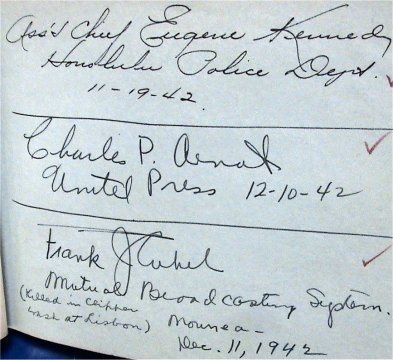 Ass't Chief Eugene Kennedy
Honolulu Police Dept.
11-19-42.
Charles P. Arnot
United Press 12-10-42
Frank J Cuhel
Mutual Broadcasting System.
(Killed in Clipper
crash at Lisbon) Noumea-
Dec. 11, 1942